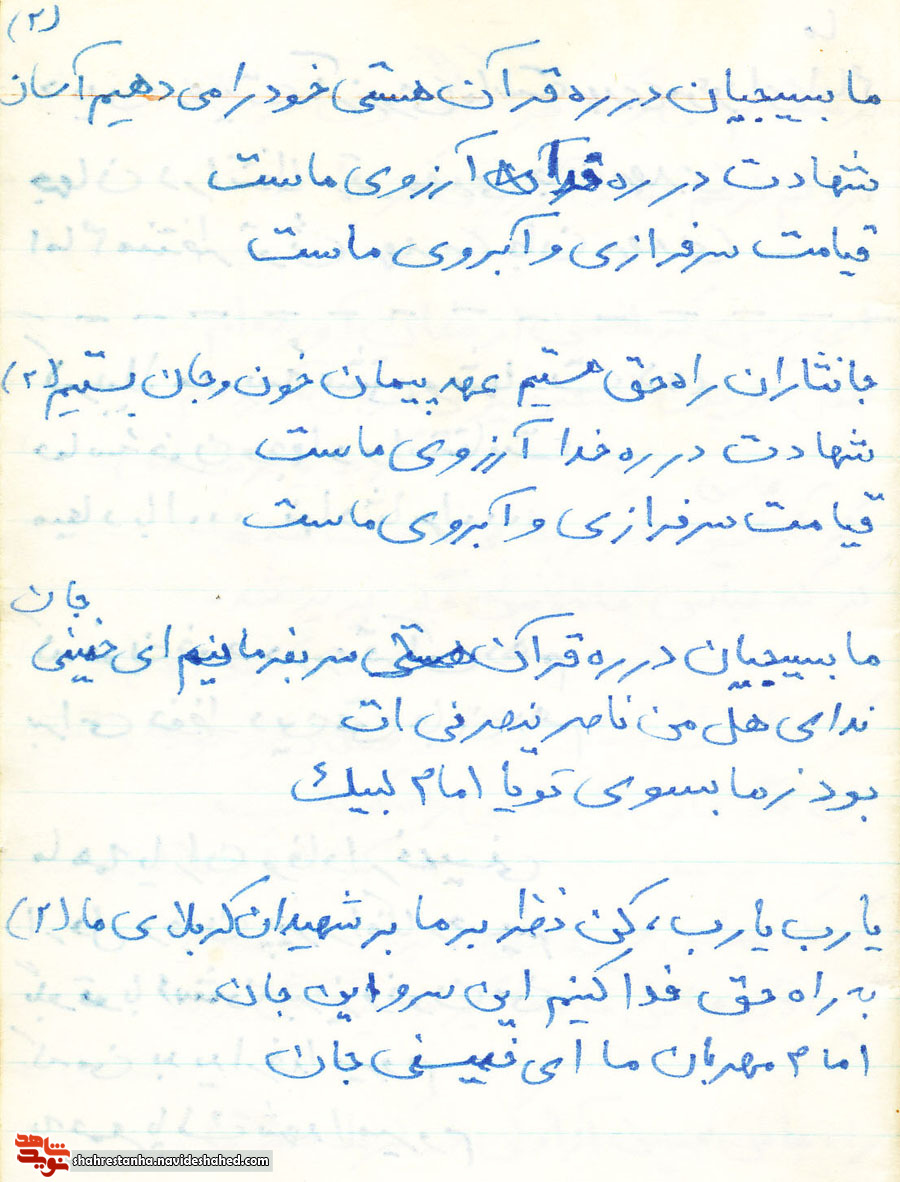 (۲)
ما بسیجیان در ره قرآن هستی خود را می دهیم آسان
شهادت در ره قرآن آرزوی ماست
قیامت سرفرازی و آبروی ماست
جانثاران راه حق هستیم عهد پیمان خون و جان بستیم (۲)
شهادت در ره خدا آرزوی ماست
قیامت سرفرازی و آبروی ماست
جان
ما بسیجیان در ره قرآن هستی سر بفرمانیم ای خمینی
ندای هل من ناصر ینصرنی ات
بود ز ما بسوی تو یا امام لبیک
یا رب یا رب، کن نظر بر ما بر شهیدان کربلای ما (۲)
به راه حق فدا کنیم این سر و این جان
امام مهربان ما ای خمینی جان
شاهد
نوید
shahrestanha.navideshahed.com